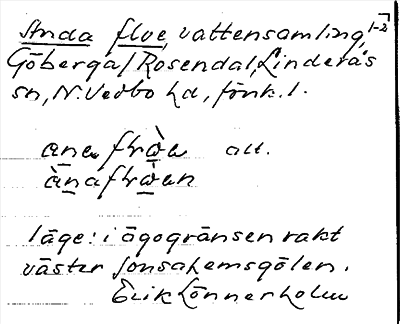 Anda floe, vattensamling, 1-2
Göberga/Rosendal, Linderås
sn, N. Vedbo hd, förk. l.
ana fròa alt.
ànafròan
läge: i ägogränsen rakt
väster Jonsahemsgölen.
Erik Lönnerholm